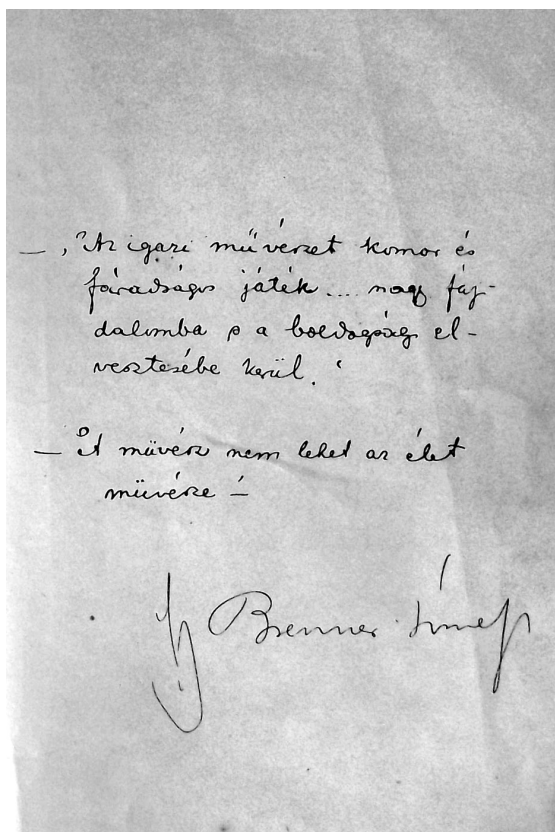 — „Az igazi művészet komor és
fáradságos játék .... nagy fáj-
dalomba s a boldogság el-
vesztésébe kerül. “
— A művész nem lehet az élet
művésze —
ifj Brenner József